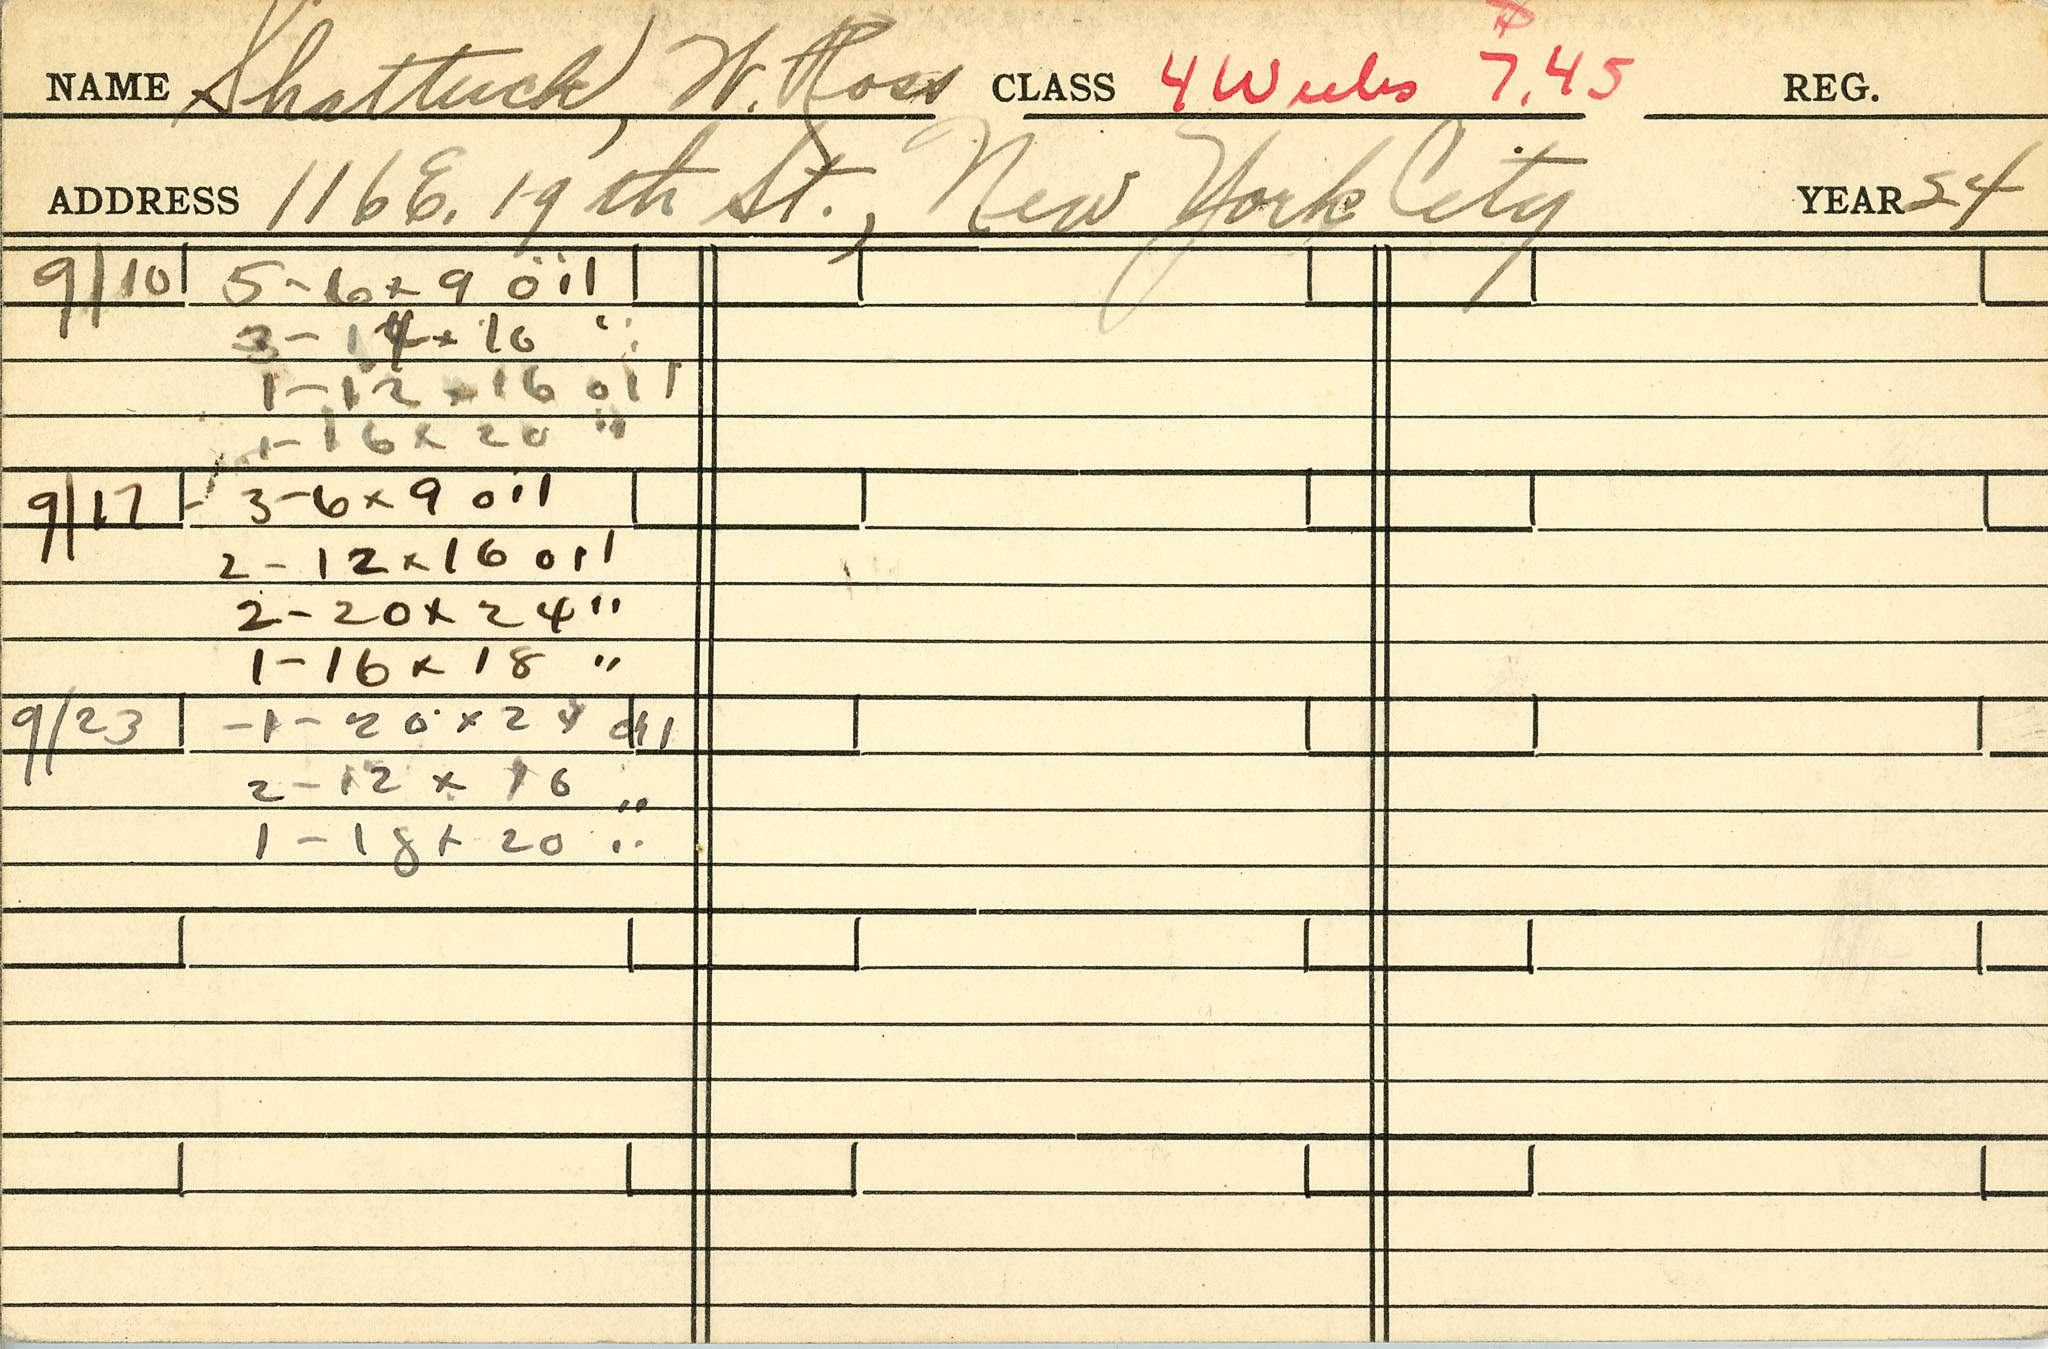 NAME Shattuck, W. Ross CLASS 4 Weeks $7.45 REG.
ADDRESS 116 E. 19th St., New York City YEAR 54
9/10 5-6x9 oil
3-14x10 "
1-12x16 oil
1-16x20 "
9/17 - 3-6x9 oil
2-12x16 oil
2-20x24 "
1-16x18 "
9/23 -1-20x24 oil
2-12x16 "
1-18x20 "